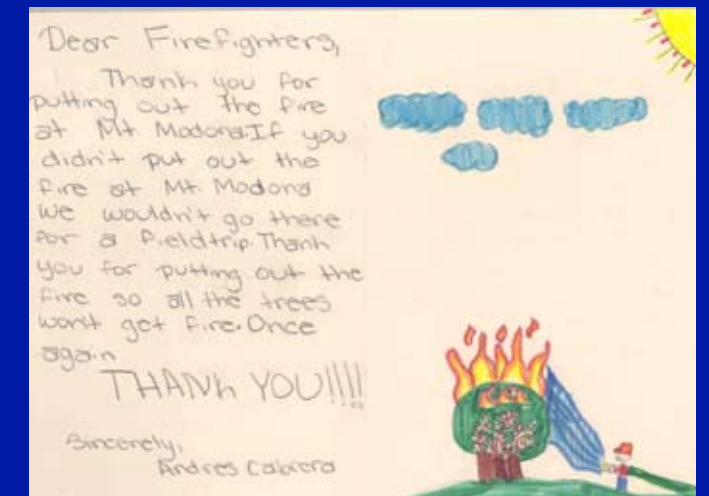 Dear Firefighters,
Thank you for
putting out the fire
at Mt Modona.If you
didn't put out the
fire at Mt. Modona
we wouldn't go there
for a fieldtrip.Thank
you for putting out the
fire so all the trees
won't get fire.Once
again
THANK YOU!!!!
Sincerely,
Andres Cabrera